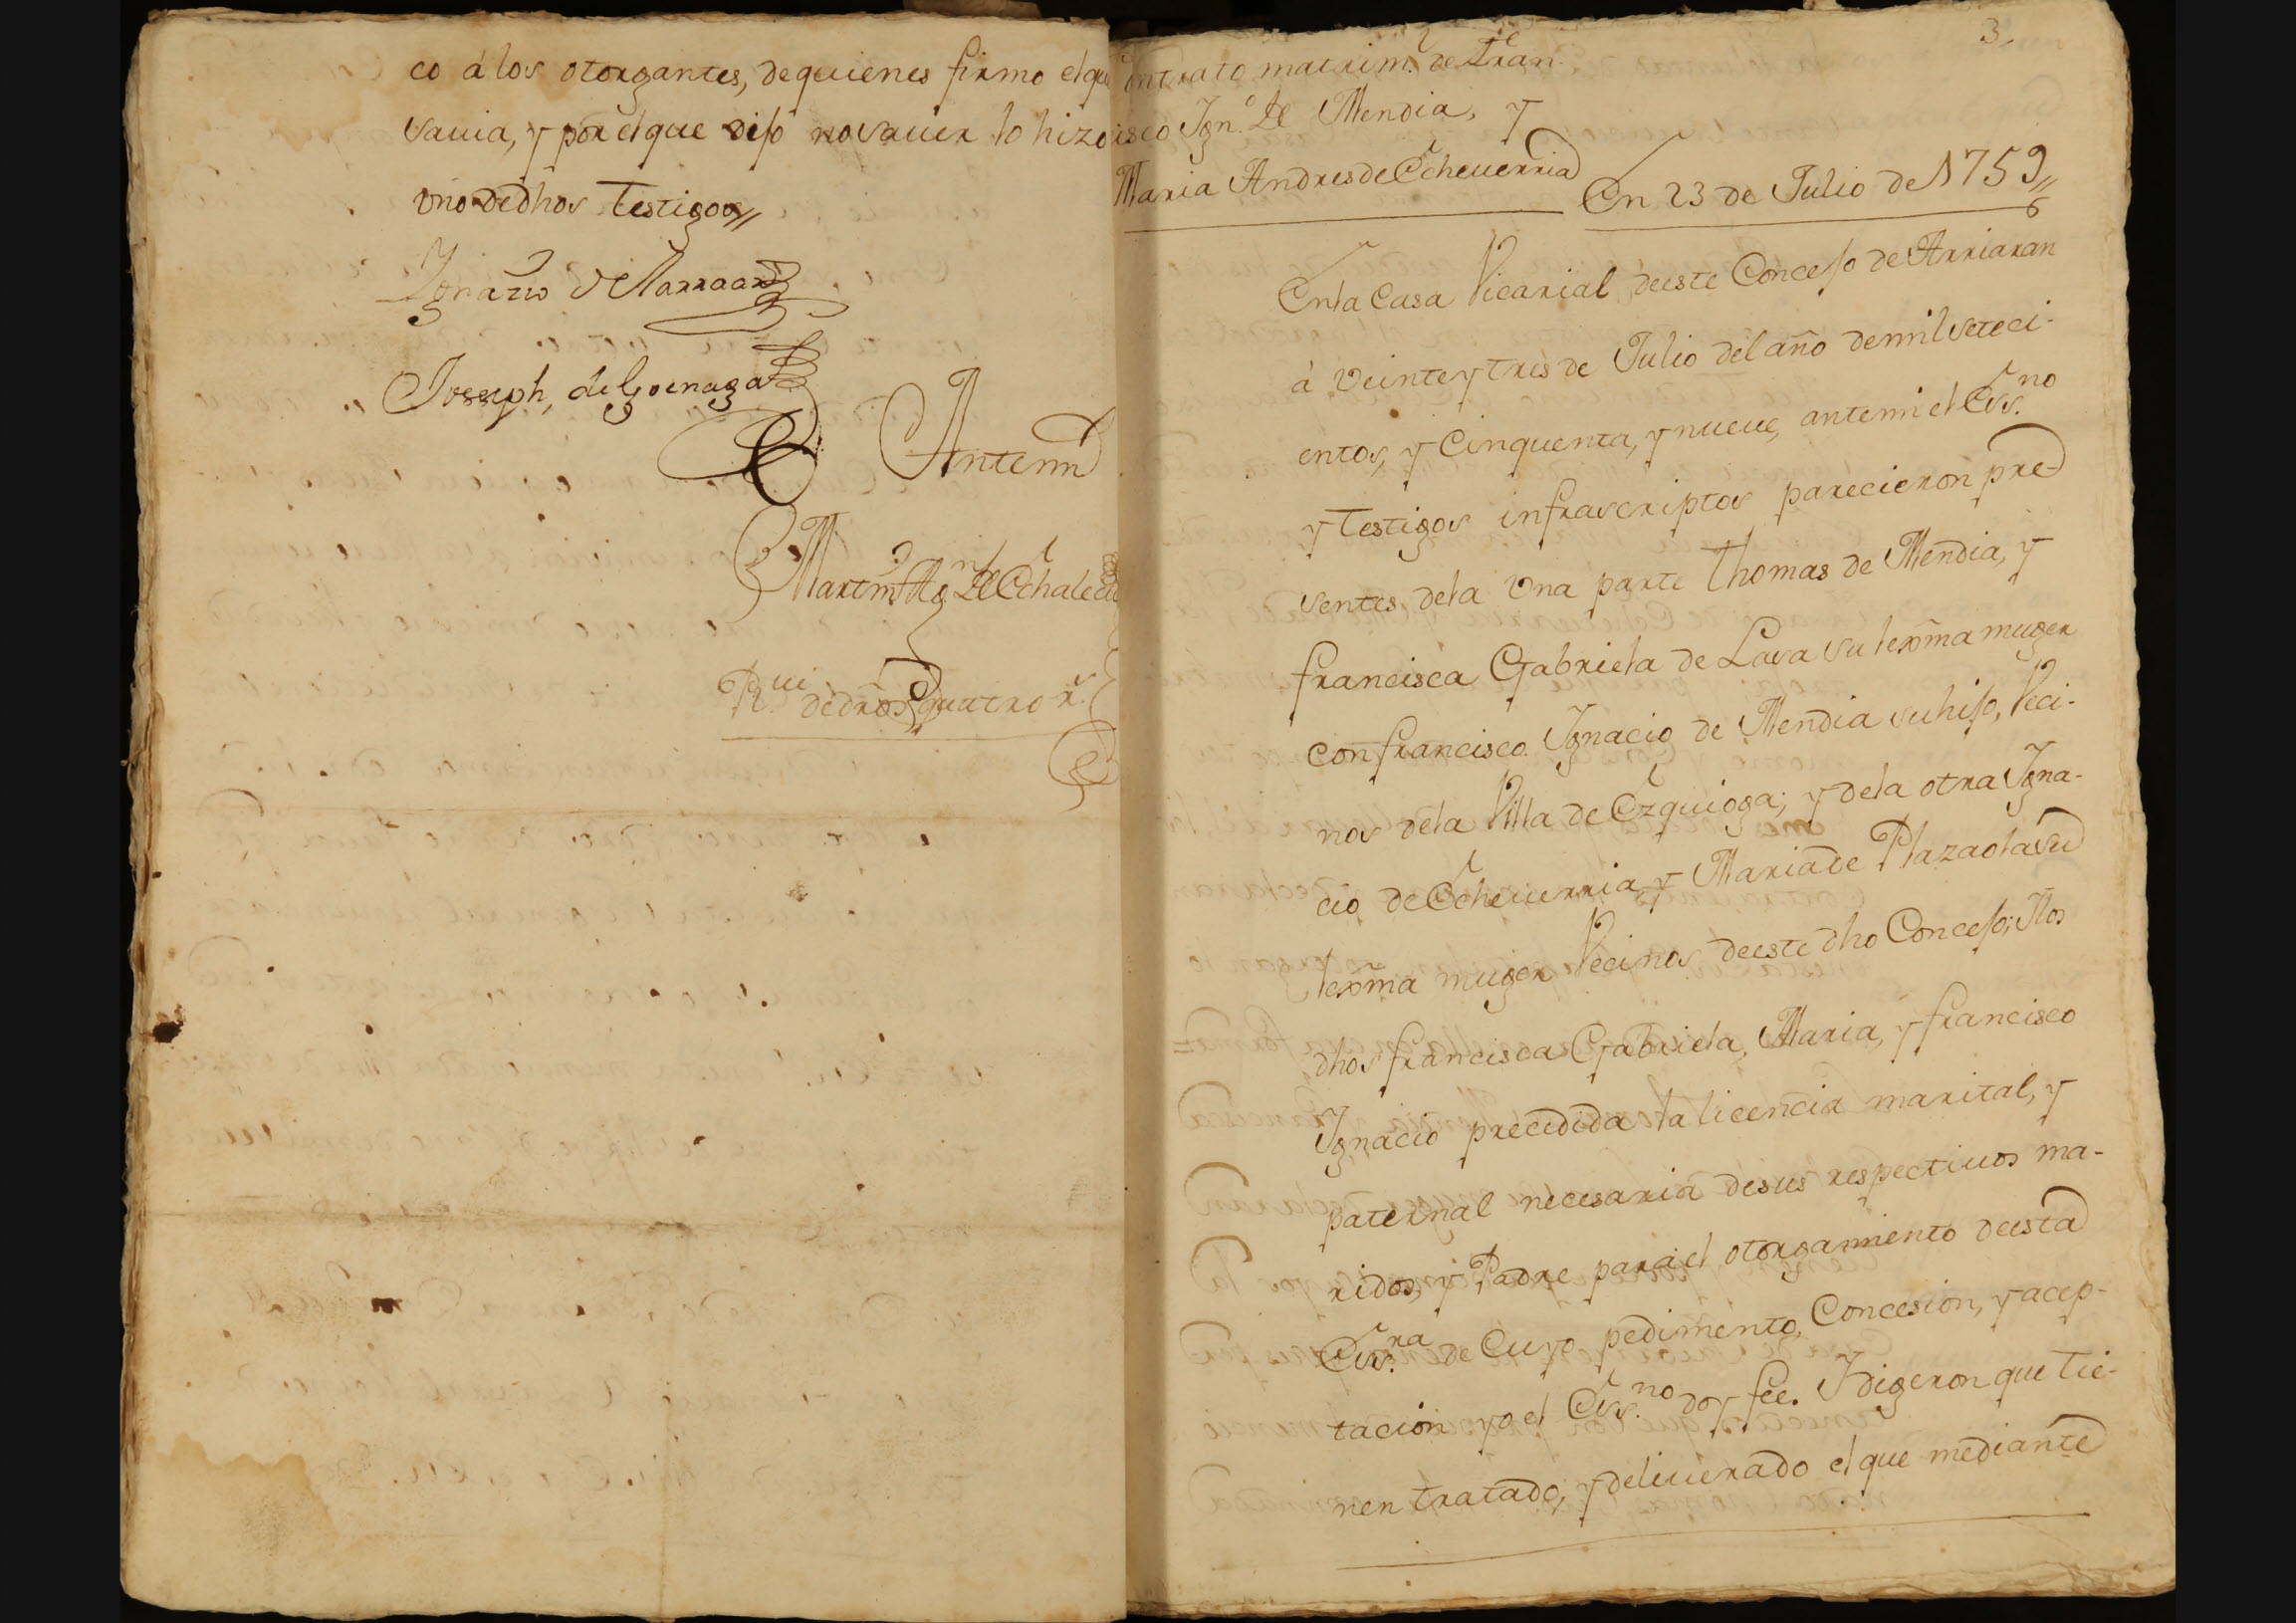 co á los otorgantes, de quienes firmo el que
savia, y por el que dijo no saver lo hizo
vno de dhos Testigos//
Ignazio de Larraar
Joseph, de Goenaga
Antemi
Martin Agn. de Echale
R.ui de dros quatro r.s
3,
Contrato matrim.l de Fran-
cisco Ign.o de Mendia, y
Maria Andres de Echeuerria
En 23 de Julio de 1759//
En la Casa Vicarial de este Concejo de Arriaran
á Veinte y tres de Julio del año de mil seteci-
entos, y Cinquenta, y nueue, antemi el Ess.no
y Testigos infrascriptos parecieron pre-
sentes, de la Vna parte Thomas de Mendia, y
francisca Gabriela de Lasa su lexma muger
con francisco Ignacio de Mendia su hijo, Veci-
nos de la Villa de Ezquioga; y de la otra Igna-
cio de Echeuerria, y Maria de Plazaola su
lexma muger Vecinos de este dho Concejo; Ylos
dhos francisca Gabriela, Maria, y francisco
Ignacio precedida la licencia marital, y
paternal necesaria de sus respectiuos ma-
ridos, y Padre para el otorgamiento de esta
Ess.ra de Cuyo pedimento, Concesion, y acep-
tacion yo el Ess.no doy fee. Y digeron que tie-
nen tratado, y deliuerado el que mediante